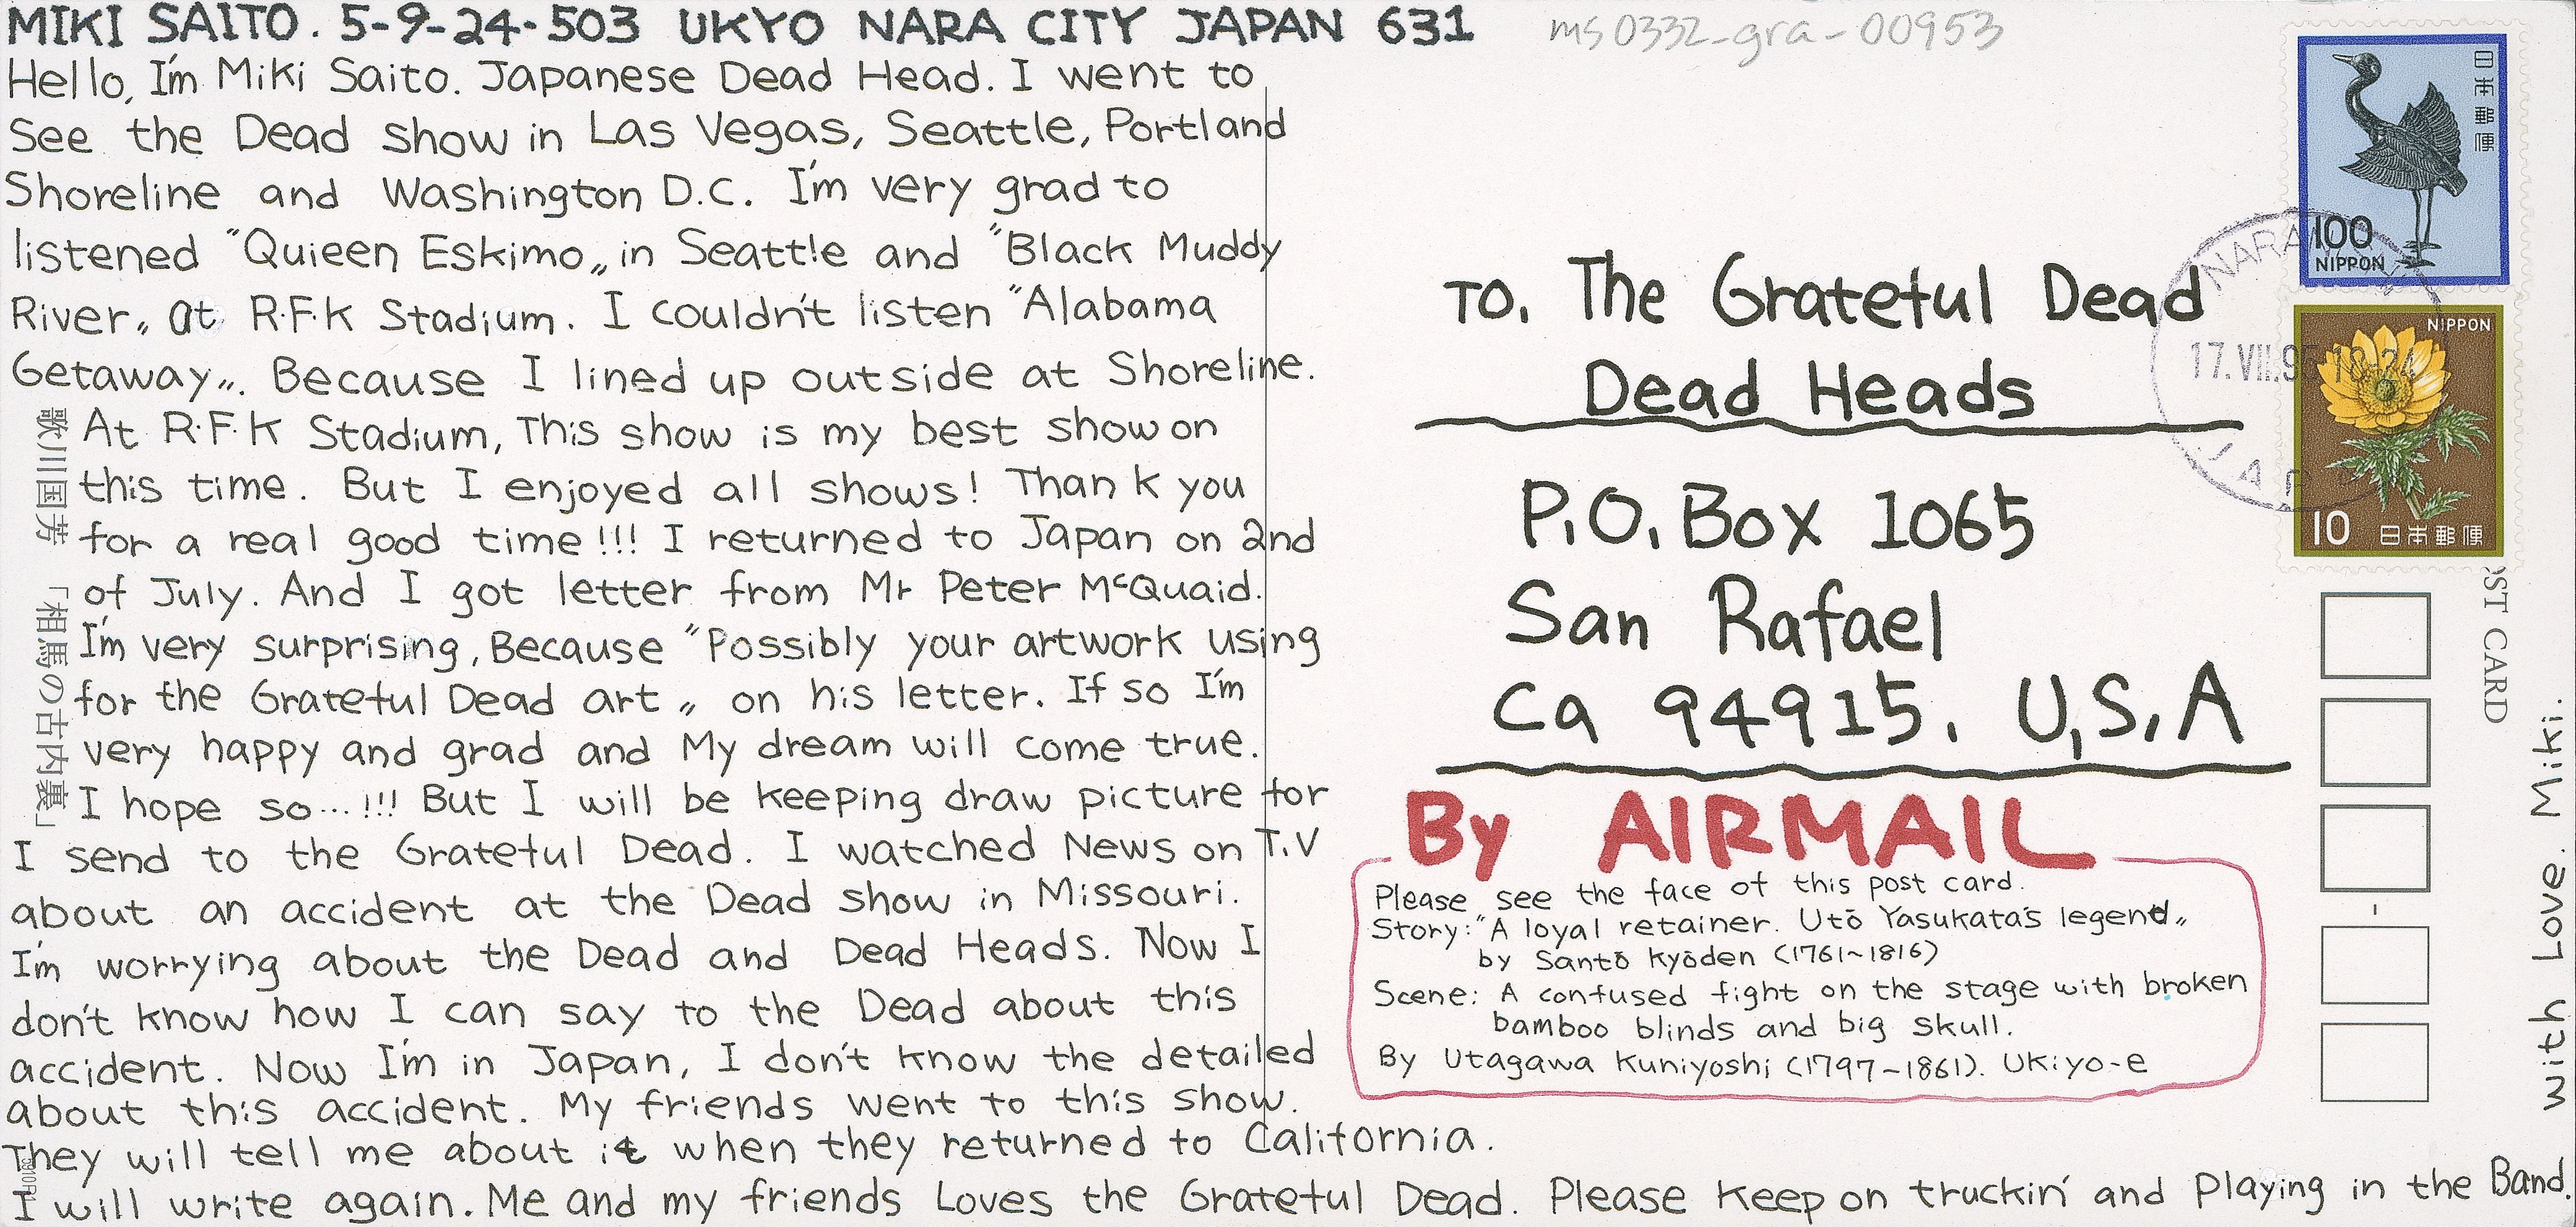 MIKI SAITO. 5-9-24-503 UKYO NARA CITY JAPAN 631
ms0332_gra-00953
Hello, I'm Miki Saito. Japanese Dead Head. I went to
See the Dead show in Las Vegas, Seattle, Portland
Shoreline and Washington D.C. I'm very grad to
listened "Quieen Eskimo„ in Seattle and "Black Muddy
River„ at R.F.K Stadium. I couldn't listen "Alabama
Getaway„. Because I lined up outside at Shoreline.
At R.F.K Stadium, This show is my best show on
this time. But I enjoyed all shows! Thank you
for a real good time!!! I returned to Japan on 2nd
of July. And I got letter from Mr Peter McQuaid.
I'm very surprising, Because "Possibly your artwork using
for the Grateful Dead art„ on his letter. If so I'm
very happy and grad and My dream will come true.
I hope so...!!! But I will be keeping draw picture for
I send to the Grateful Dead. I watched News on T.V
about an accident at the Dead show in Missouri.
I'm worrying about the Dead and Dead Heads. Now I
don't know how I can say to the Dead about this
accident. Now I'm in Japan, I don't know the detailed
about this accident. My friends went to this show.
They will tell me about it when they returned to California.
I will write again. Me and my friends Loves the Grateful Dead. Please Keep on truckin' and Playing in the Band.
with Love. Miki.
歌川国芳 「相馬の古内裏」
TO. The Grateful Dead
Dead Heads
P.O. Box 1065
San Rafael
Ca 94915. U.S.A
By AIRMAIL
Please see the face of this post card.
Story: "A loyal retainer. Utō Yasukata's legend„
by Santō Kyōden (1761~1816)
Scene: A confused fight on the stage with broken
bamboo blinds and big skull.
By Utagawa Kuniyoshi (1797~1861). Ukiyo-e
日本郵便
100
NIPPON
NIPPON
10 日本郵便
NARA
17.VII.95
JAPAN
ST CARD